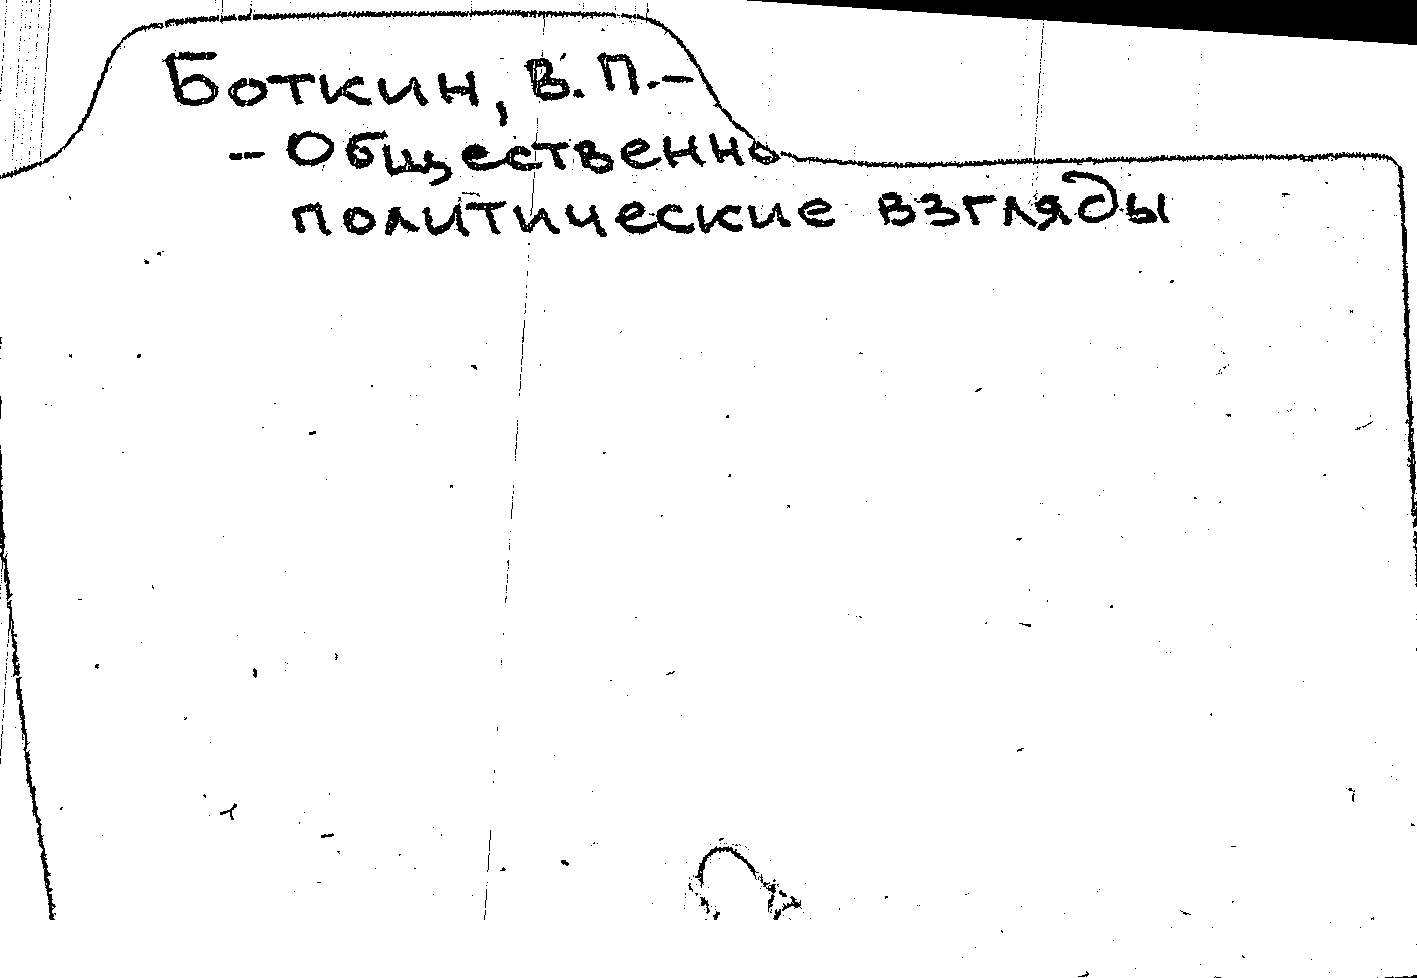 Боткин, В. П.-
-- Общественно
политические взгляды